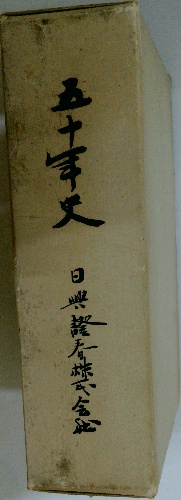 五十年史
日興證券株式会社